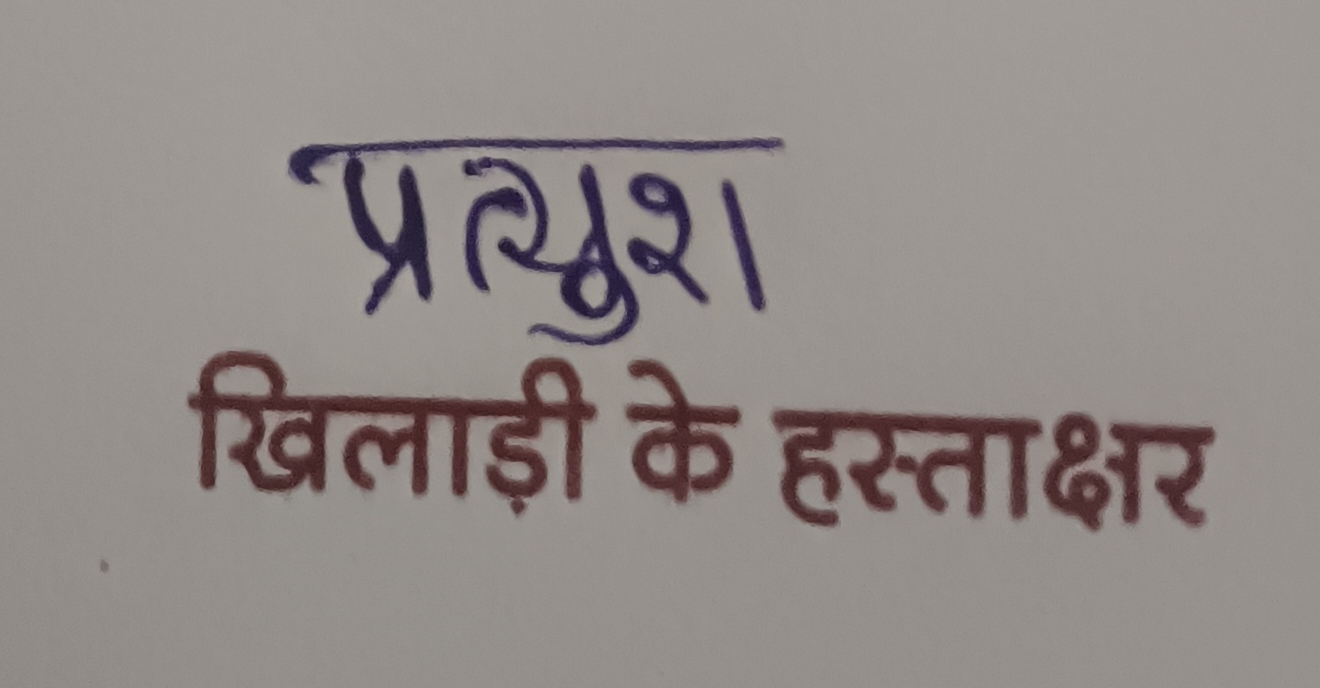 प्रत्युश
खिलाड़ी के हस्ताक्षर